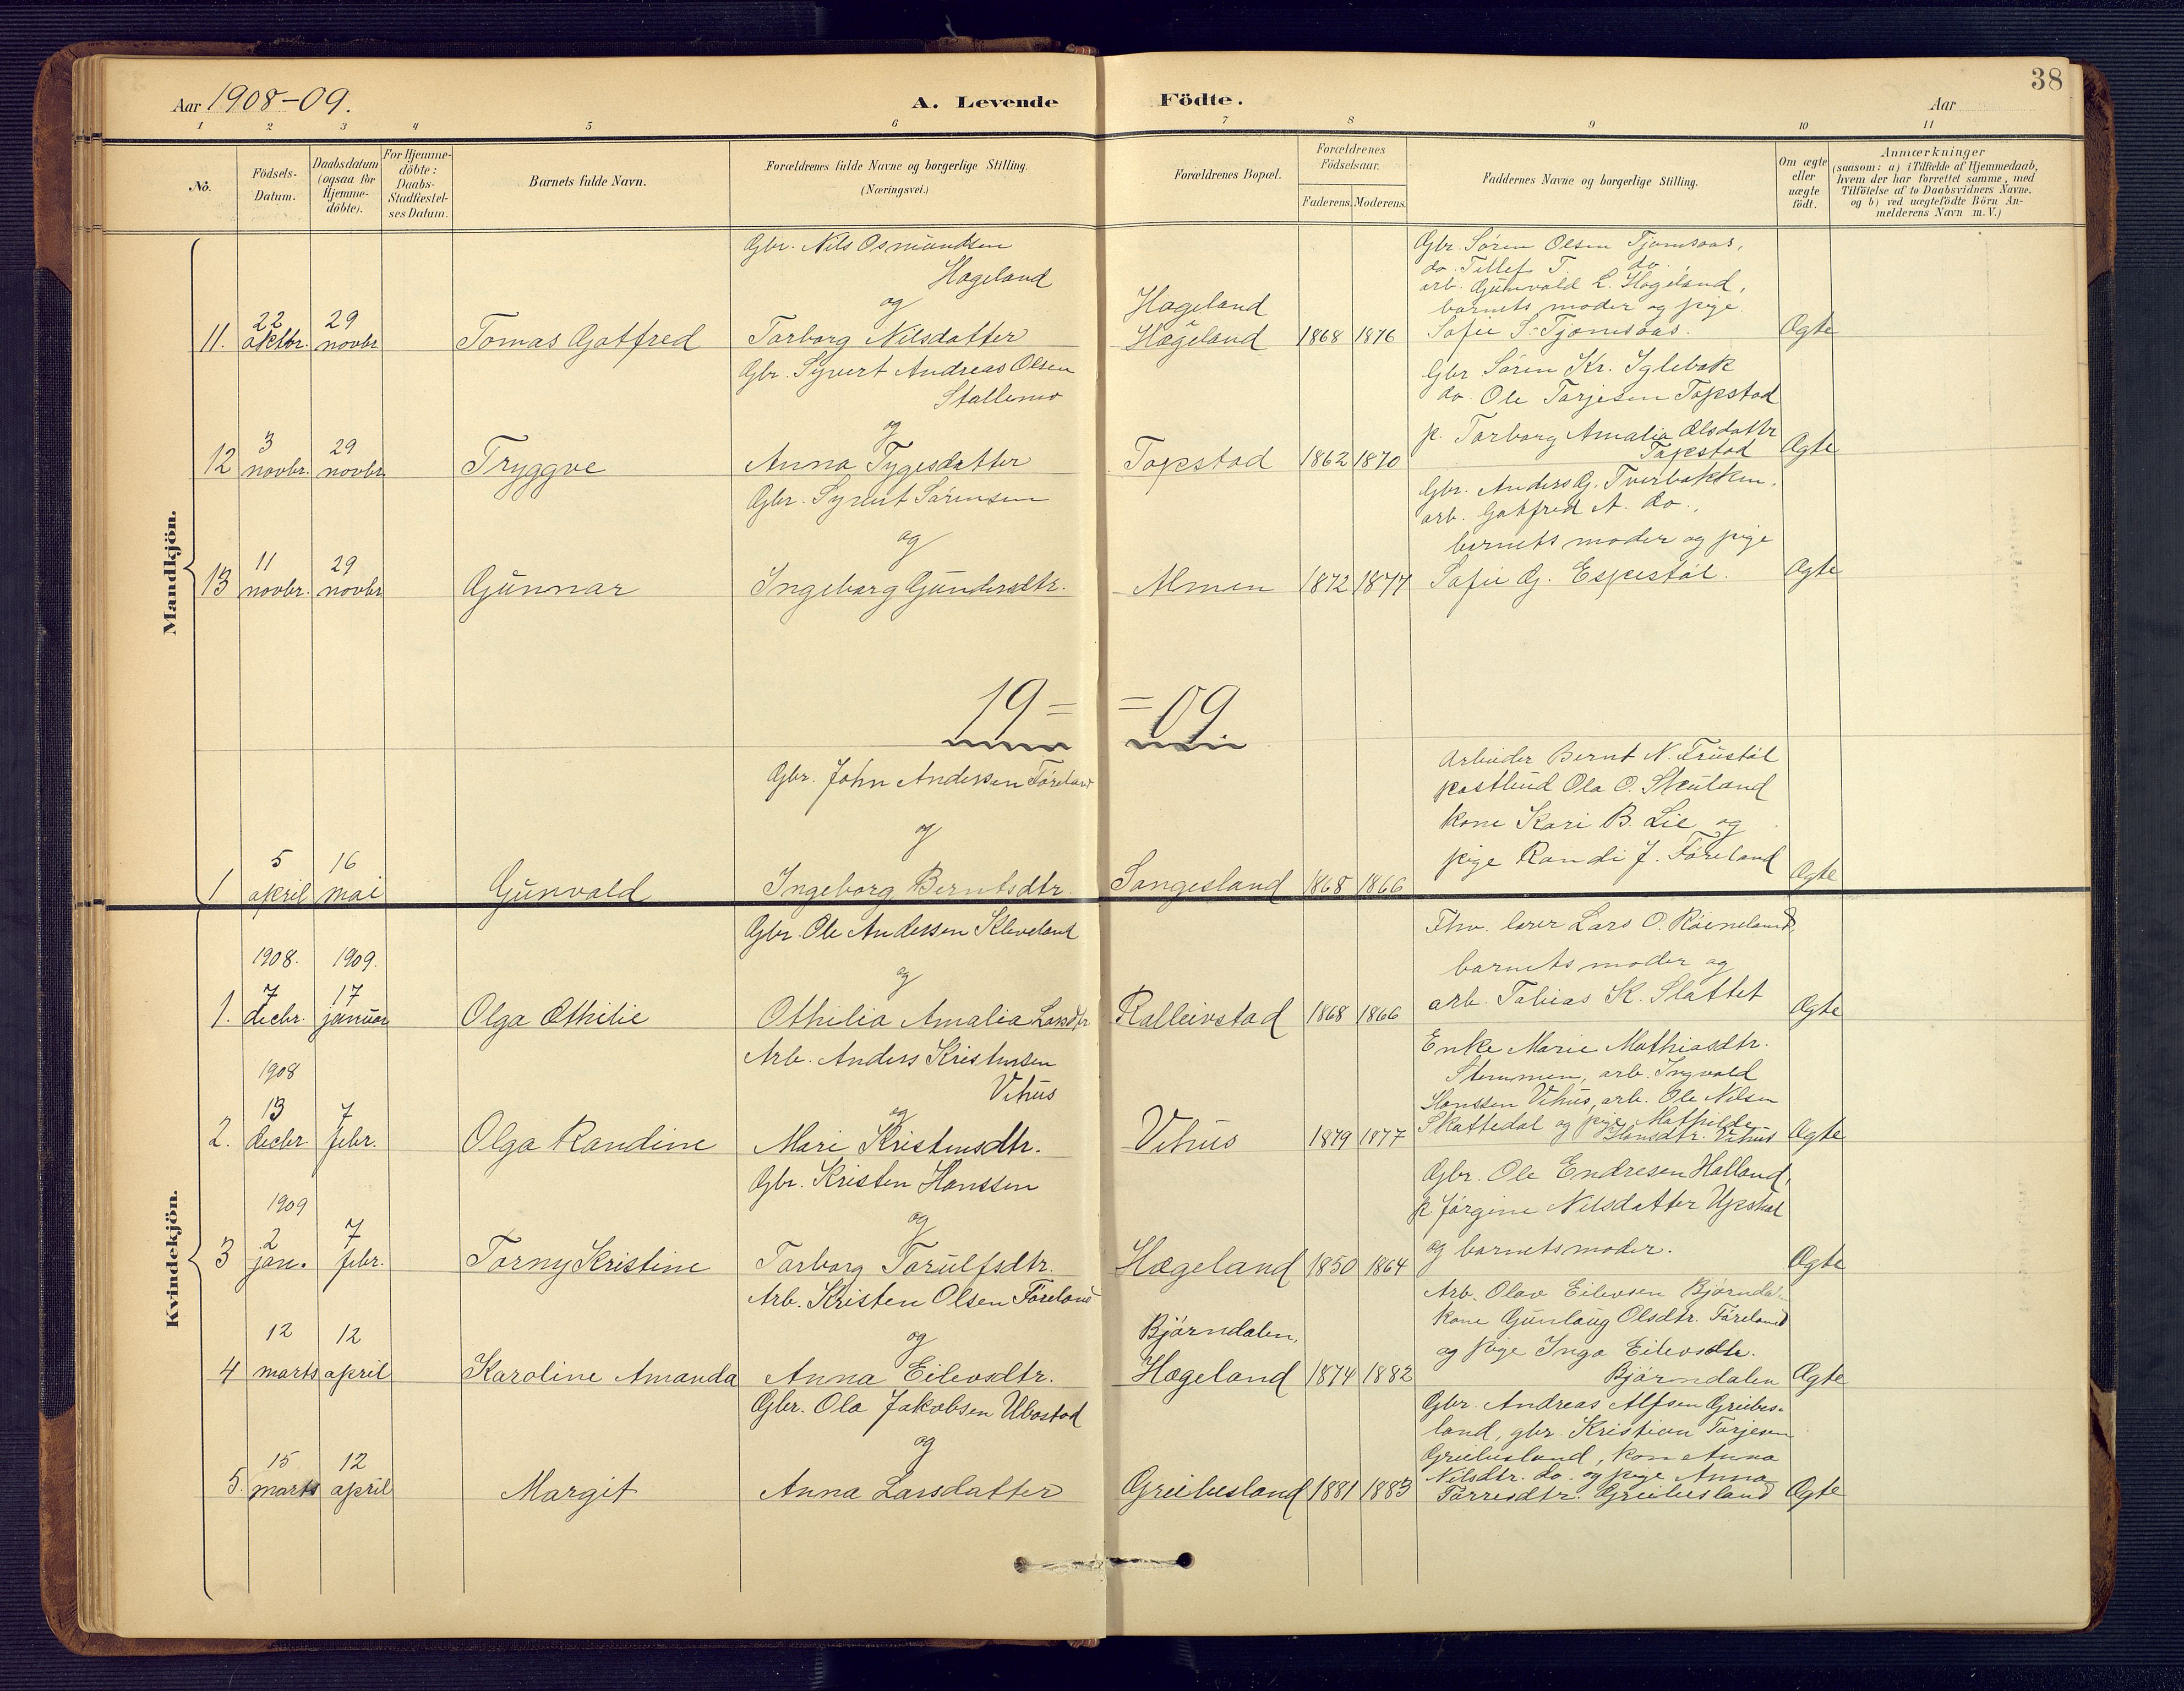 38
Aar 1908-09.
A. Levende Födte.
Aar
1 2 3 4 5 6 7 8 9 10 11
No.
Födsels-
Datum.
Daabsdatum
(ogsaa for
Hjemme-
döbte).
For Hjemme-
döbte:
Daabs-
Stadfæstel-
ses Datum.
Barnets fulde Navn.
Forældrenes fulde Navne og borgerlige Stilling.
(Næringsvei.)
Forældrenes Bopæl.
Forældrenes
Födselsaar.
Faderens. Moderens.
Faddernes Navne og borgerlige Stilling.
Om ægte
eller
uægte
födt.
Anmærkninger
(saasom: a) i Tilfælde af Hjemmedaab,
hvem der har forrettet samme, med
Tilföielse af to Daabsvidners Navne.
og b) ved uægtefödte Börn An-
melderens Navn m. V.)
Mandkjön.
11.
22
oktbr.
29
novbr
Tomas Gotfred
Gbr. Nils Osmundsen
Hægeland
og
Torborg Nilsdatter
Hageland
Hægeland
1868 1876
Gbr. Søren Olsen Tjomsaas,
do. Tellef T. do.,
arb. Gunvald L. Hægeland,
barnets moder og pige
Sofie S. Tjomsaas.
Ægte
12
3
novbr.
29
novbr
Tryggve
Gbr. Syvert Andreas Olsen
Stallemo
og
Anna Tygesdatter
Topstad
1862 1870
Gbr Søren Kr. Iglebæk
do. Ole Tarjesen Topstad
p. Torborg Amalia Olsdattr
Topstad
Ægte
13
11
novbr.
29
novbr
Gunnar
Gbr. Syvert Sørensen
og
Ingeborg Gundersdtr.
Monen
1872 1877
Gbr. Anders G. Tverbakken,
arb. Gotfred A. do.,
barnets moder og pige
Sofie G. Espestøl.
Ægte
19= =09
1
5
april
16
mai
Gunvald
Gbr. John Andersen Føreland
og
Ingeborg Berntsdtr.
Sangesland
1868 1866
Arbeider Bernt N. Trustøl
postbud Ola O. Skuland
kone Kari B. Lie og
pige Randi J. Føreland
Ægte
Kvindekjön.
1.
1908.
7
decbr.
1909.
17
januar
Olga Othilie
Gbr. Ole Andersen Kleveland
og
Othilia Amalia Larsdtr
Ralleivstad
1868 1866
Fhv. lærer Lars O. Røineland,
barnets moder og
arb. Tobias K. Slattet
Ægte
2.
1908
13
decbr.
7
febr.
Olga Randine
Arb. Anders Kristensen
Vehus
og
Mari Kristensdtr.
Vehus
1879 1877
Enke Marie Mathiasdtr.
Stemmen, arb. Ingvald
Hanssen Vehus, arb. Ole Nilsen
Skattedal og pige Mathilde
Hansdtr. Vehus
Ægte
3
1909
2
jan.
7
febr.
Torny Kristine
Gbr. Kristen Hanssen
og
Torborg Torulfsdtr.
Hægeland
1850 1864
Gbr. Ole Endresen Halland,
p Jørgine Nilsdatter Upstad
og barnets moder.
Ægte
4
12
marts
12
april
Karoline Amanda
Arb. Kristen Olsen Føreland
og
Anna Eilevsdtr.
Bjørndalen,
Hægeland
1874 1882
Arb. Olav Eilevsen Bjørndalen
kone Gunlaug Olsdtr. Føreland
og pige Inga Eilevsdtr.
Bjørndalen
Ægte
5.
15
marts
12
april
Margit
Gbr. Ola Jakobsen Ubostad
og
Anna Larsdatter
Greibesland
1881 1883
Gbr. Andreas Alfsen Greibes-
land, gbr. Kristian Tarjesen
Greibesland, kone Anna
Nilsdtr. do. og pige Anna
Torresdtr. Greibesland
Ægte